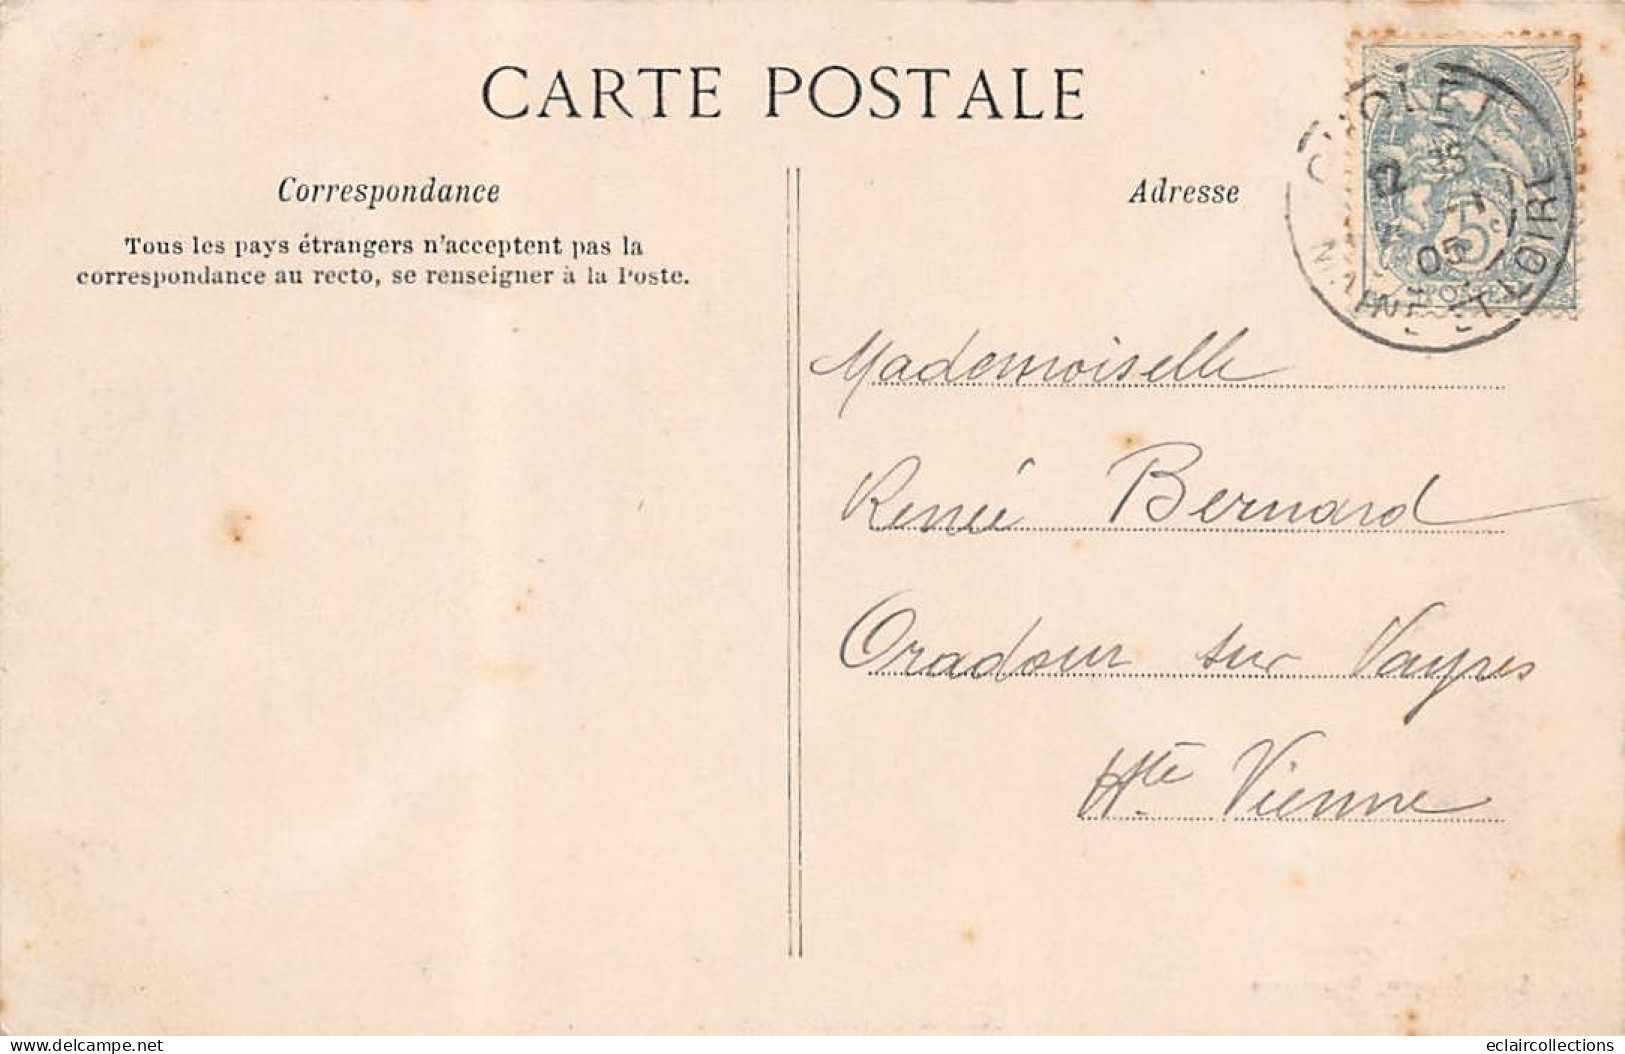 CARTE POSTALE
Correspondance
Tous les pays étrangers n'acceptent pas la
correspondance au recto, se renseigner à la Poste.
Adresse
CHOLET
05
5c
POSTES
MAINE ET LOIRE
Mademoiselle
Renée Bernard
Oradour sur Vayres
Hte Vienne
www.delcampe.net
eclaircollections